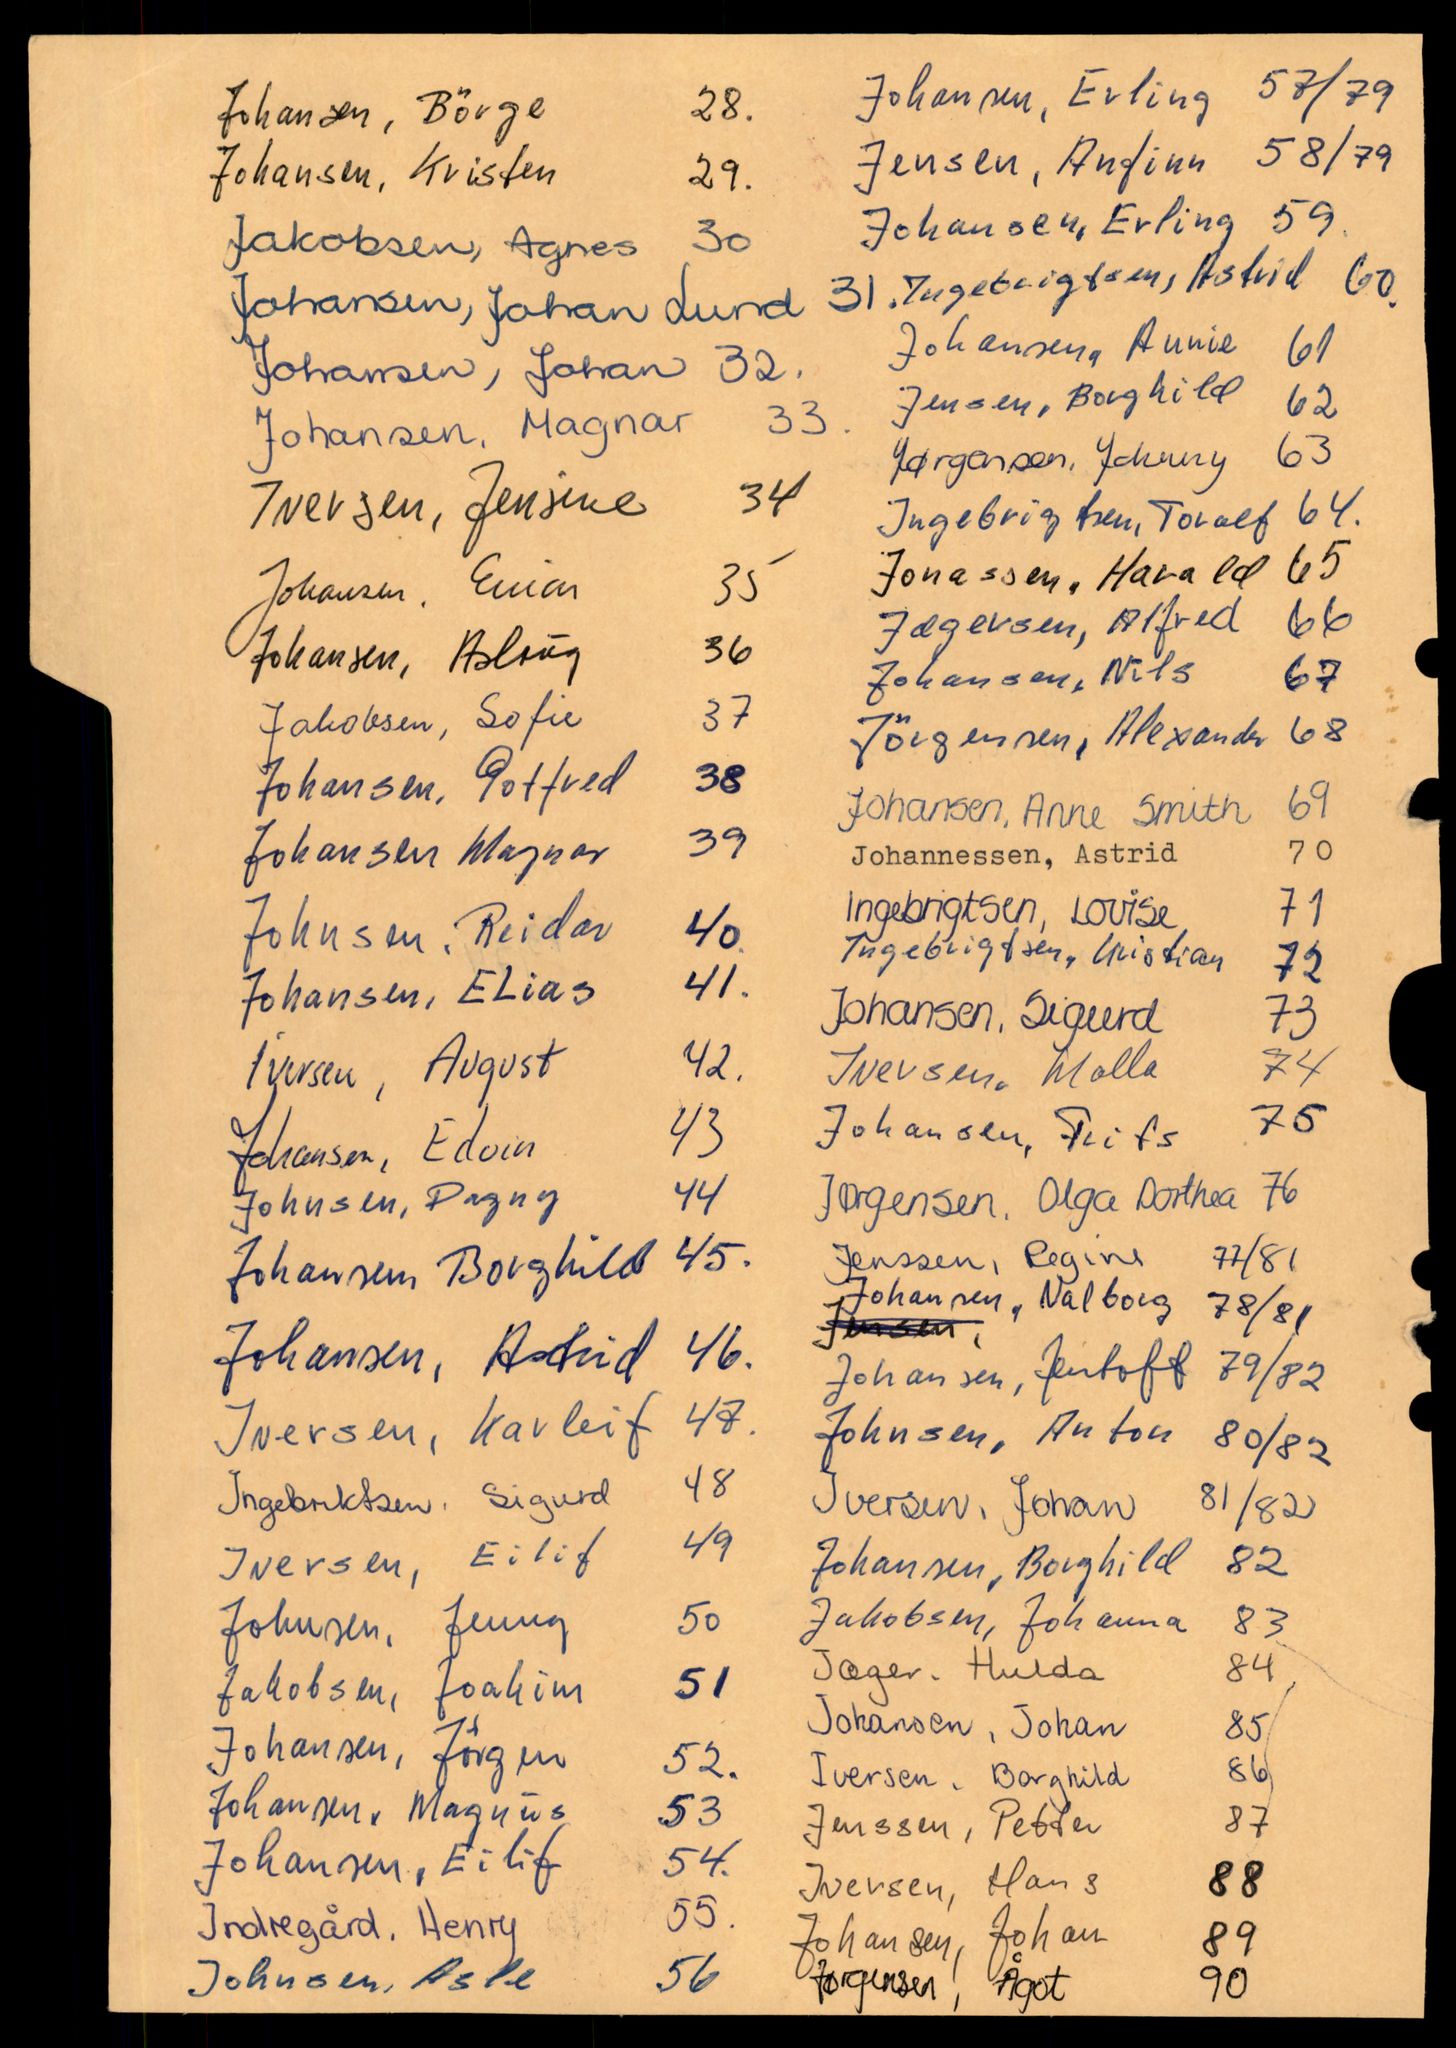 Johansen, Börge 28.
Johansen, Kristen 29.
Jakobsen, Agnes 30
Johansen, Johan Lund 31.
Johansen, Johan 32.
Johansen, Magnar 33.
Iversen, Jensine 34
Johansen, Einar 35
Johansen, Aslaug 36
Jakobsen, Sofie 37
Johansen, Gotfred 38
Johansen Magnar 39
Johnsen, Reidar 40.
Johansen, ELias 41.
Iversen, August 42.
Johansen, Edvin 43
Johnsen, Dagny 44
Johansen, Borghild 45.
Johansen, Astrid 46.
Iversen, Karleif 47.
Ingebriktsen, Sigurd 48
Iversen, Eilif 49
Johnsen, Jenny 50
Jakobsen, Joakim 51
Johansen, Jörgen 52.
Johansen, Magnus 53
Johansen, Eilif 54.
Indregård, Henry 55.
Johnsen, Asle 56
Johansen, Erling 57/79
Jensen, Anfinn 58/79
Johansen, Erling 59.
Ingebrigtsen, Astrid 60.
Johansen, Annie 61
Jensen, Borghild 62
Jørgensen, Johnny 63
Ingebrigtsen, Toralf 64.
Jonassen, Harald 65
Jægersen, Alfred 66
Johansen, Nils 67
Jörgensen, Alexander 68
Johansen, Anne Smith 69
Johannessen, Astrid 70
Ingebrigtsen, Lovise 71
Ingebrigtsen, Kristian 72
Johansen, Sigurd 73
Iversen, Malla 74
Johansen, Frits 75
Jørgensen, Olga Dorthea 76
Jenssen, Regine 77/81
Johansen, Valborg 78/81
Jensen,
Johansen, Jentoft 79/82
Johnsen, Anton 80/82
Iversen, Johan 81/82
Johansen, Borghild 82
Jakobsen, Johanna 83
Jæger, Hulda 84
Johansen, Johan 85
Iversen, Borghild 86
Jenssen, Petter 87
Iversen, Hans 88
Johansen, Johan 89
Jørgensen, Ågot 90